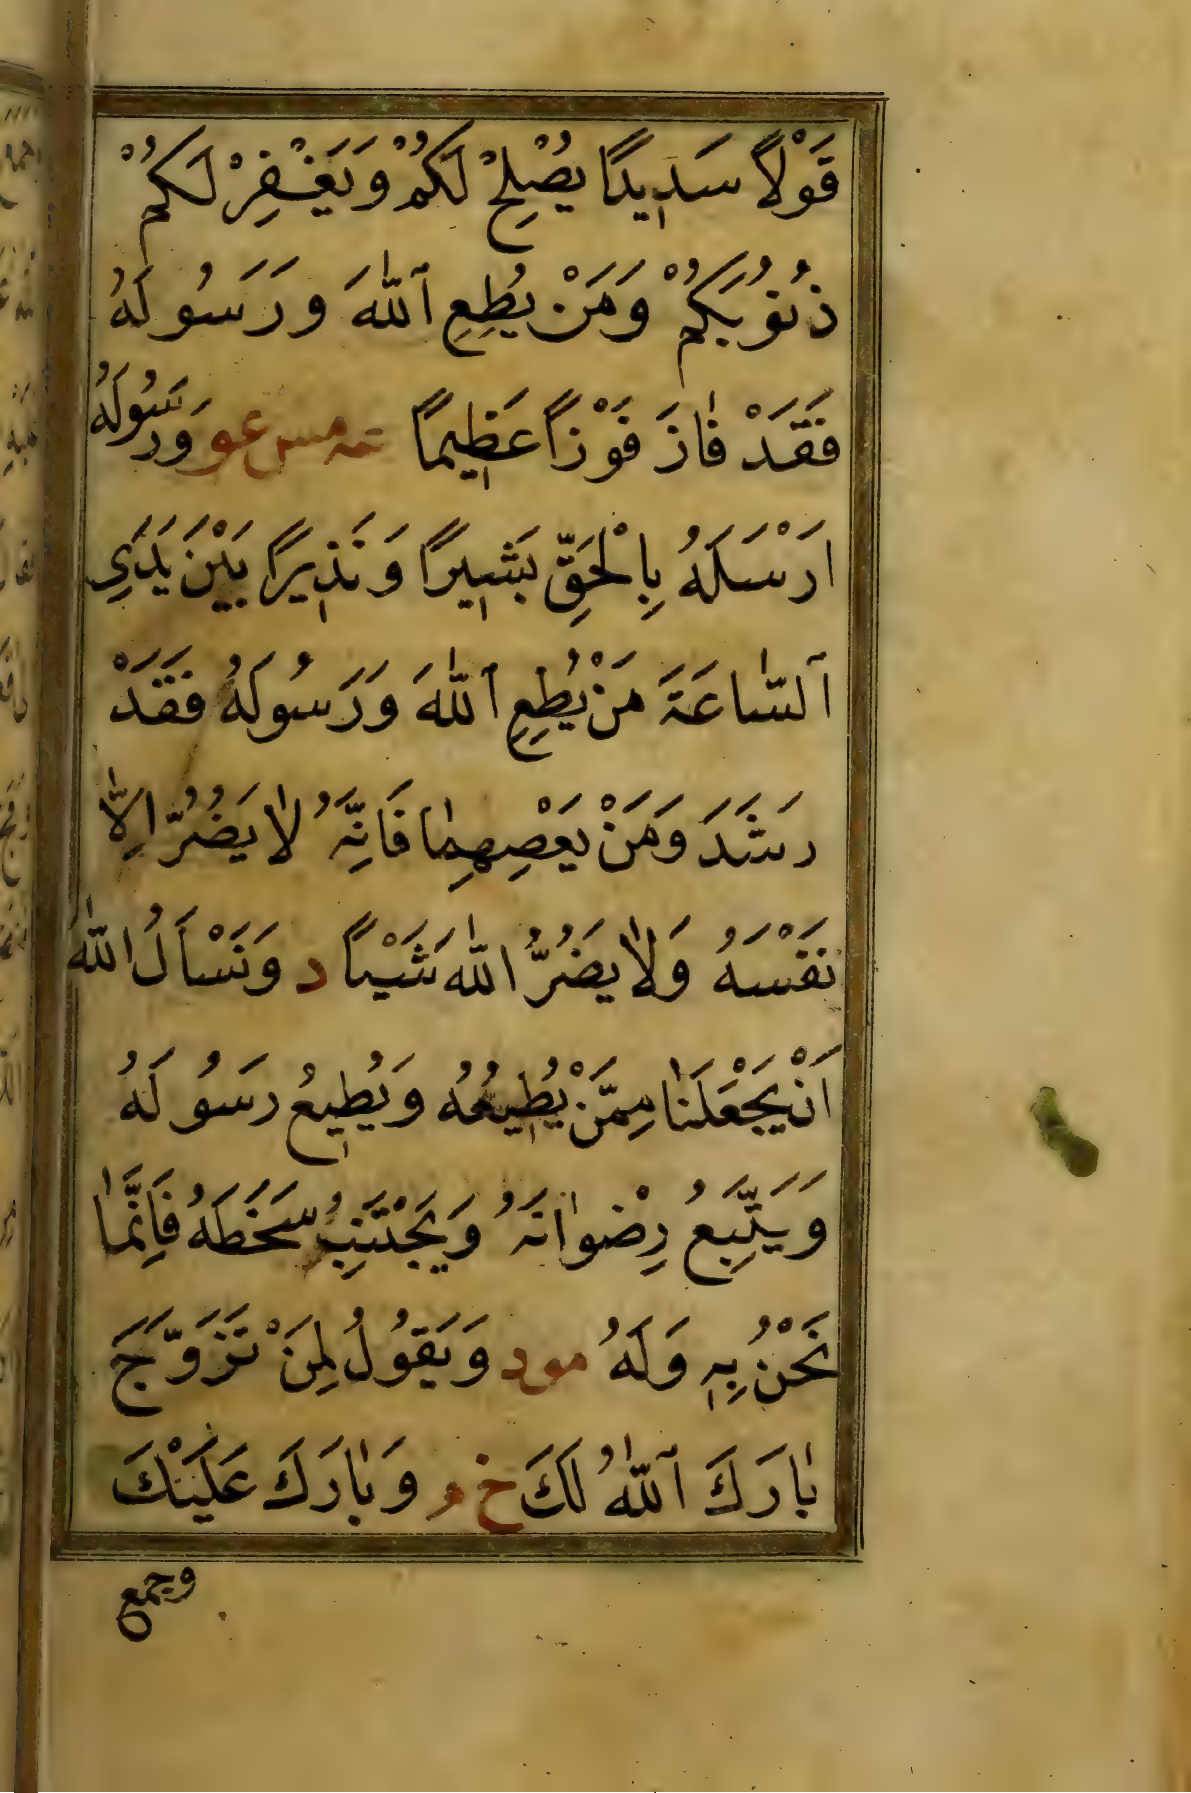 قَوْلاً سَدِيدًا يُصْلِحْ لَكُمْ وَيَغْفِرْ لَكُمْ
ذُنُوبَكُمْ وَمَنْ يُطِعِ اللّٰهَ وَرَسُولَهُ
فَقَدْ فَازَ فَوْزًا عَظِيمًا عه مس عو وَرَسُولُهُ
اَرْسَلَهُ بِالْحَقِّ بَشِيرًا وَنَذِيرًا بَيْنَ يَدَيِ
السَّاعَةَ مَنْ يُطِعِ اللّٰهَ وَرَسُولَهُ فَقَدْ
رَشَدَ وَمَنْ يَعْصِهِمَا فَاِنَّهُ لَا يَضُرُّ اِلَّا
نَفْسَهُ وَلَا يَضُرُّ اللّٰهَ شَيْئًا د وَنَسْأَلُ اللّٰهَ
اَنْ يَجْعَلَنَا مِمَّنْ يُطِيعُهُ وَيُطِيعُ رَسُولَهُ
وَيَتَّبِعُ رِضْوَانَهُ وَيَجْتَنِبُ سَخَطَهُ فَاِنَّمَا
نَحْنُ بِهِ وَلَهُ مود وَيَقُولُ لِمَنْ تَزَوَّجَ
بَارَكَ اللّٰهُ لَكَ خ م وَبَارَكَ عَلَيْكَ
وجمع